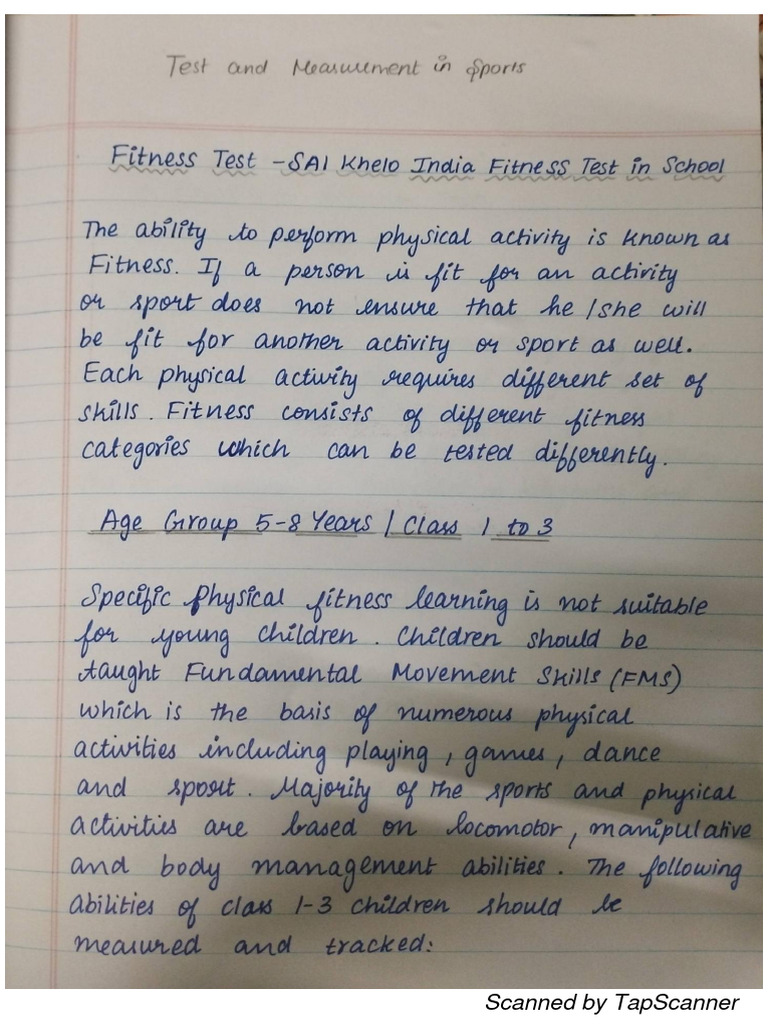 Test and Measurement in Sports
Fitness Test - SAI Khelo India Fitness Test in School
The ability to perform physical activity is known as
Fitness. If a person is fit for an activity
or sport does not ensure that he/she will
be fit for another activity or sport as well.
Each physical activity requires different set of
skills. Fitness consists of different fitness
categories which can be tested differently.
Age Group 5-8 Years / Class 1 to 3
Specific Physical fitness learning is not suitable
for young children. Children should be
taught Fundamental Movement Skills (FMS)
which is the basis of numerous physical
activities including playing, games, dance
and sport. Majority of the sports and physical
activities are based on locomotor, manipulative
and body management abilities. The following
abilities of class 1-3 children should be
measured and tracked:
Scanned by TapScanner